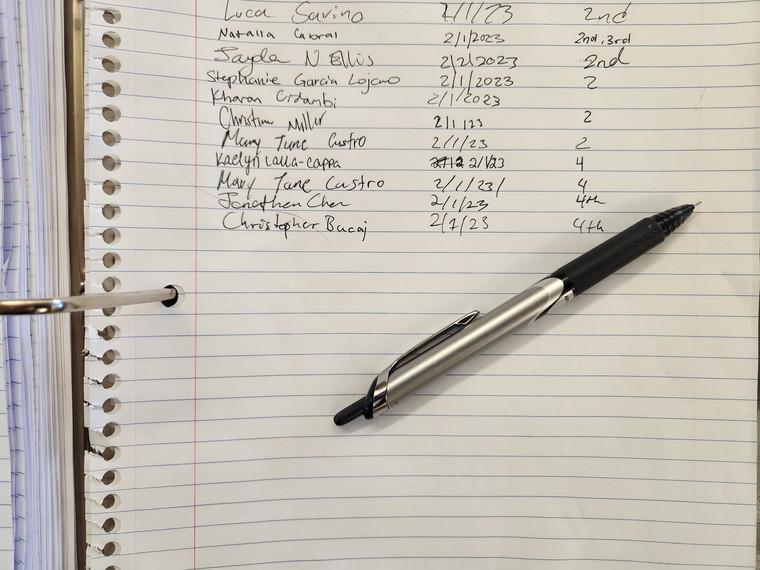 Luca Savino 2/1/23 2nd
Natalia Cabral 2/1/2023 2nd, 3rd
Jayda N Ellis 2/2/2023 2nd
Stephanie Garcia Lojano 2/1/2023 2
Kharan 2/1/2023
Christian Miller 2/1/23 2
Mary Jane Castro 2/1/23 2
Kaelyn Lalla-Cappa 2/1/23 4
Mary Jane Castro 2/1/23/ 4
Jonathen Chen 2/1/23 4th
Christopher Bacaj 2/1/23 4th